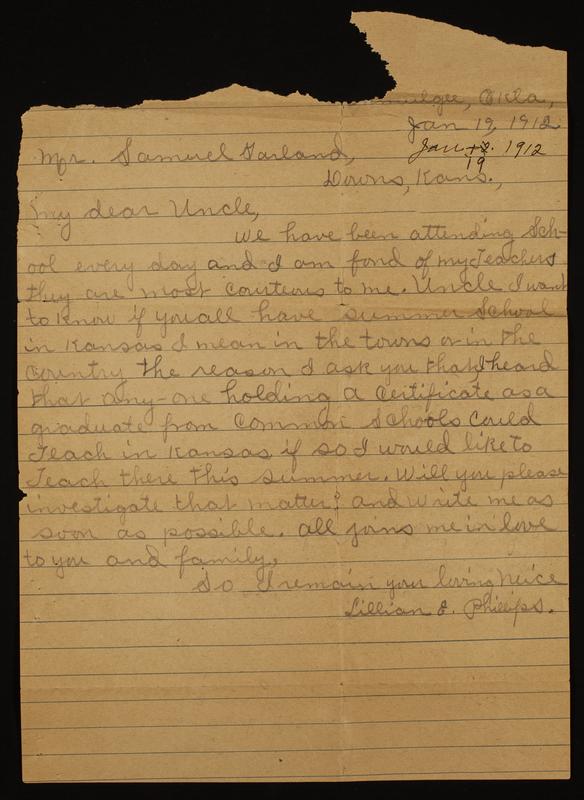 mulgee, Okla,
Jan 19, 1912
Jan 12. 1912
19
Mr. Samuel Garland,
Downs, Kans.,
My dear Uncle,
We have been attending Sch-
ool every day and I am fond of my Teachers
they are most courteous to me. Uncle I want
to know if you all have summer School
in Kansas I mean in the towns or in the
Country the reason I ask you that, I heard
that any-one holding a Certificate as a
graduate from Common Schools could
Teach in Kansas if so I would like to
Teach there this summer. Will you please
investigate that matter? and write me as
soon as possible. all joins me in love
to you and family,
So I remain your loving Neice
Lillian J. Phillips.